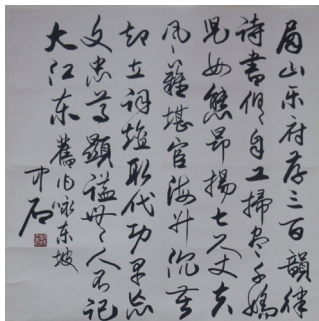 眉山乐府存三百韵律
诗书俱自工扫尽千娇
儿女态昂扬七尺丈夫
风难堪宦海升沉苦
却立词坛取代功早忘
文忠尊显谥世人记
大江东 旧作咏东坡
中石